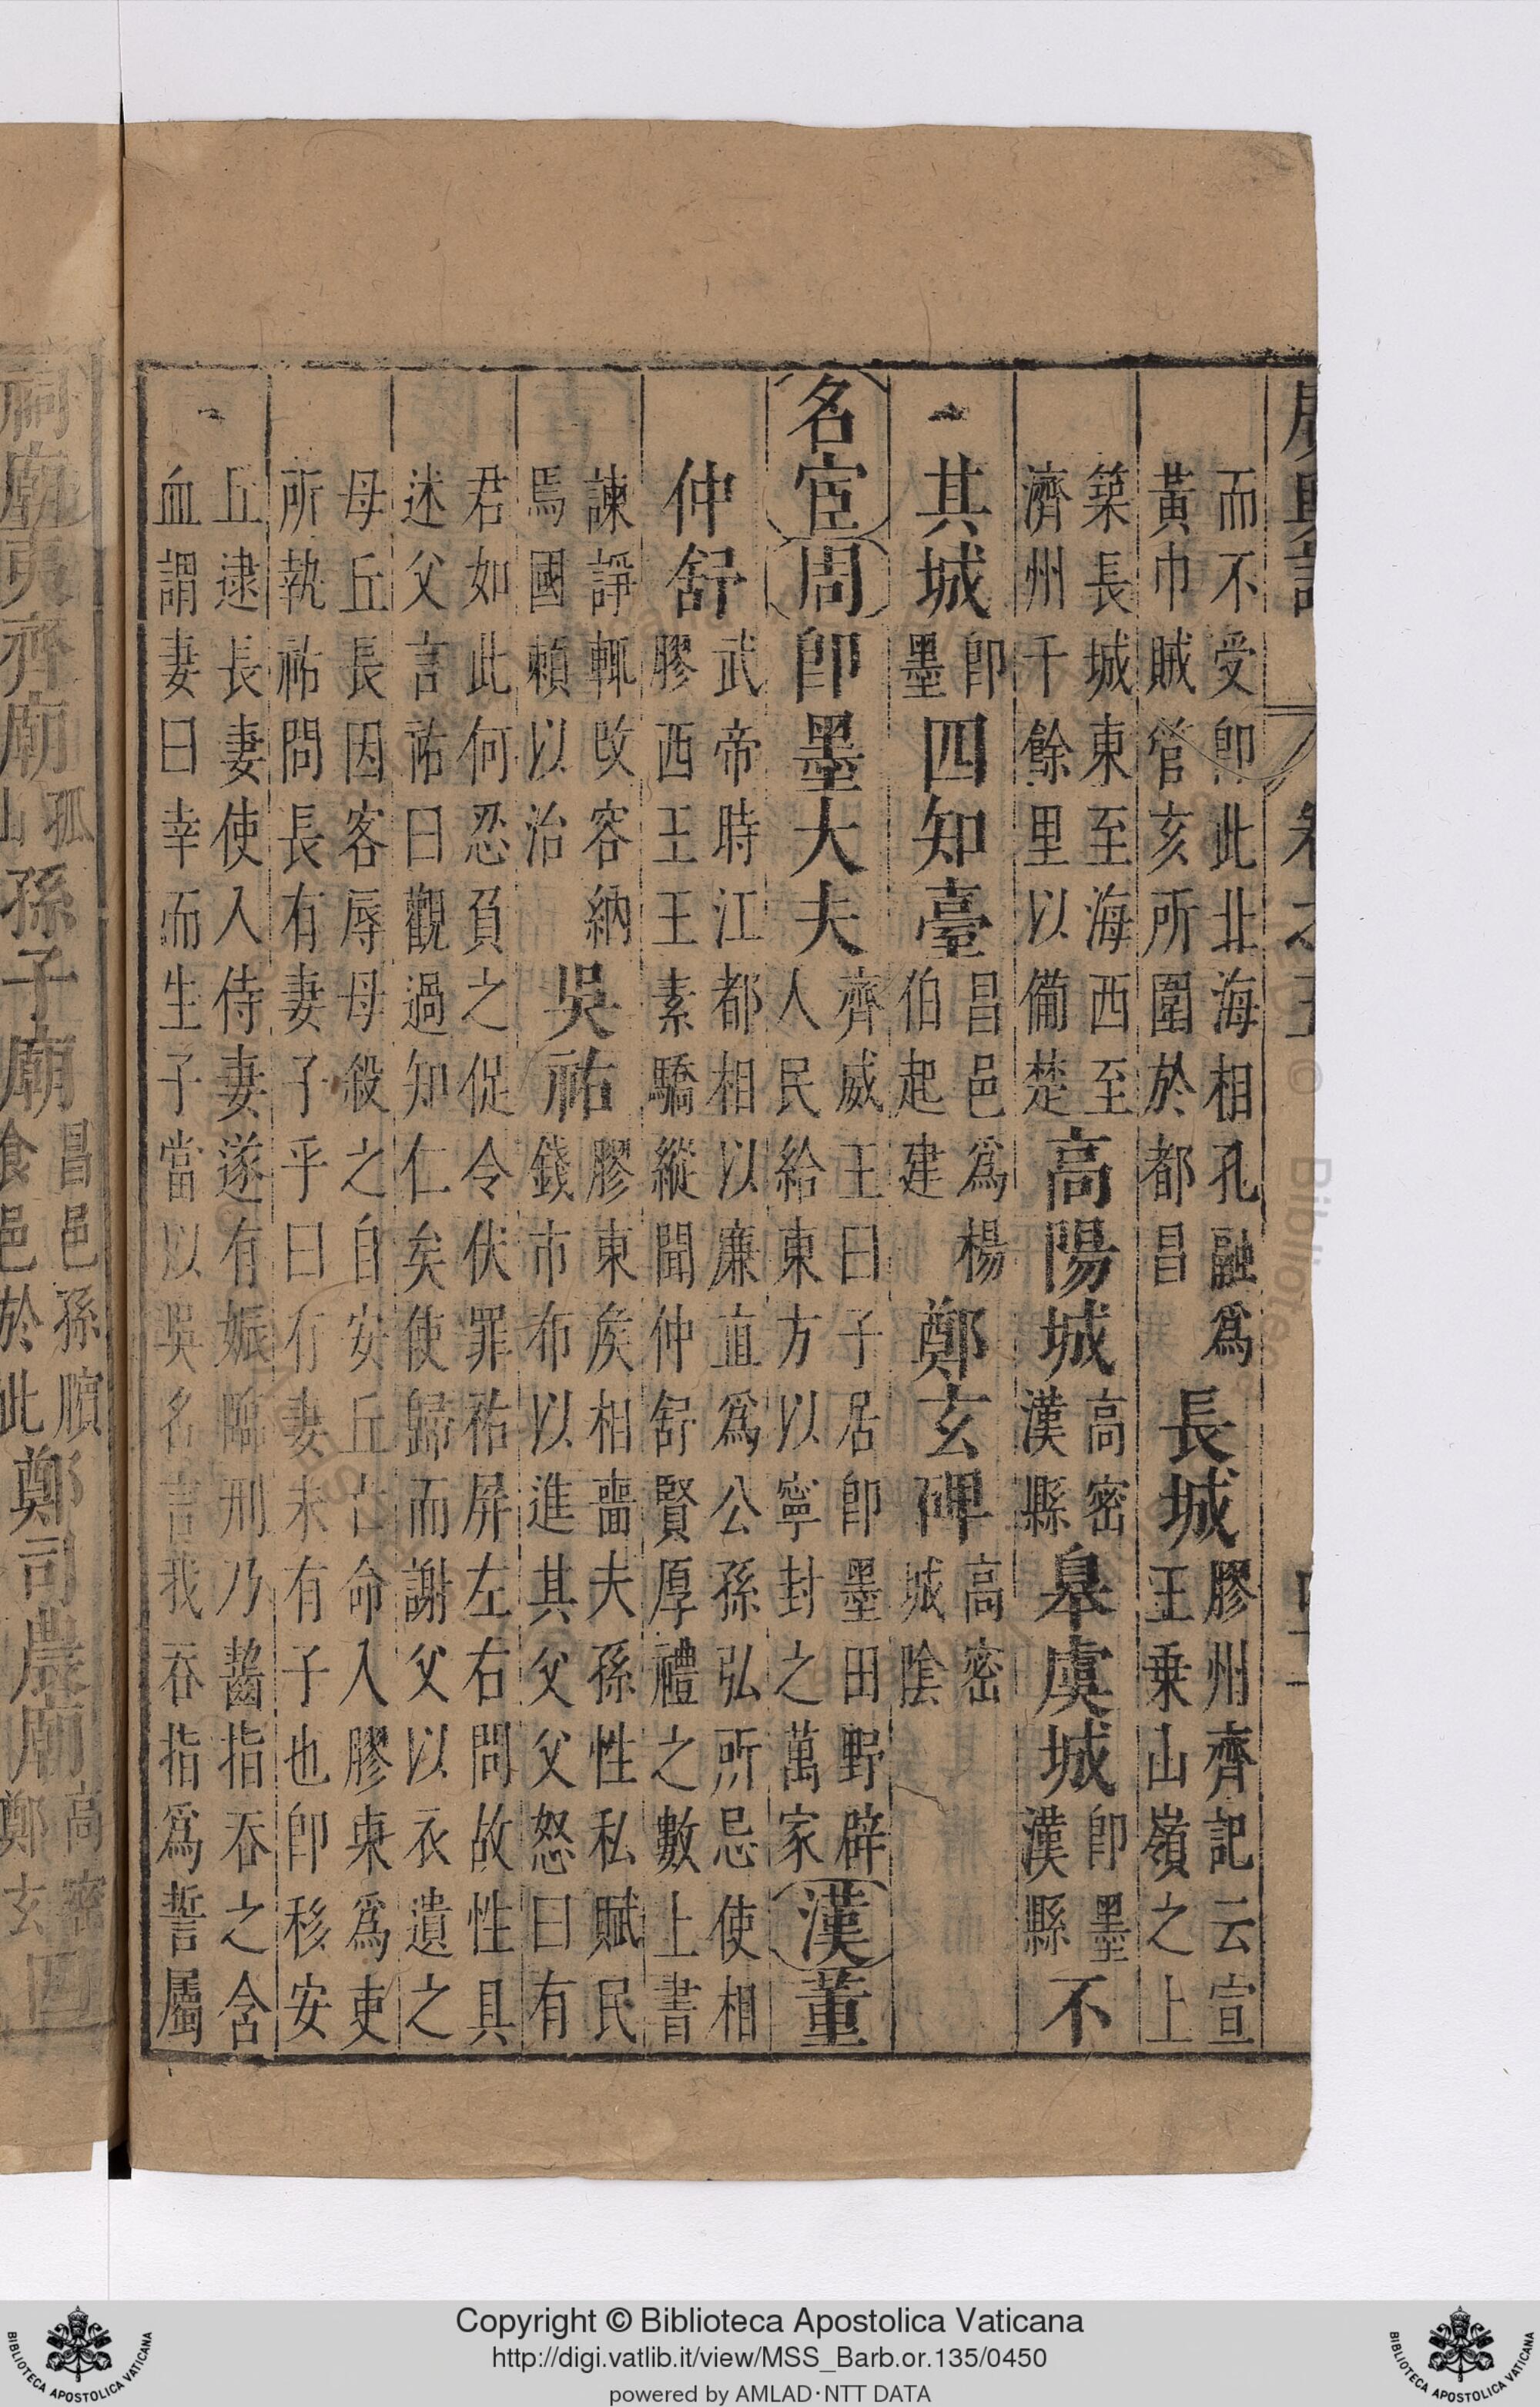 廣輿記 卷之五
而不受卽此北海相孔融爲黃巾賊管亥所圍於都昌 長城 膠州齊記云宣王乗山嶺之上
築長城東至海西至濟州千餘里以備楚 高陽城 高密漢縣 皋虞城 卽墨漢縣 不
其城 卽墨 四知臺 昌邑爲楊伯起建 鄭玄碑 高密城陰
名宦 周 卽墨大夫 齊威王曰子居卽墨田野辟人民給東方以寧封之萬家 漢 董
仲舒 武帝時江都相以廉直爲公孫弘所忌使相膠西王王素驕縱聞仲舒賢厚禮之數上書
諫諍輒改容納焉國賴以治 吳祐 膠東矦相嗇夫孫性私賦民錢市布以進其父父怒曰有
君如此何忍負之促令伏罪祐屏左右問故性具述父言祐曰觀過知仁矣使歸而謝父以衣遺之
母丘長因客辱母殺之自安丘亡命入膠東爲吏所執祐問長有妻子乎曰有妻未有子也卽移安
丘逮長妻使入侍妻遂有娠臨刑乃齧指吞之含血謂妻曰幸而生子當以吳名言我吞指爲誓屬
祠廟 夷齊廟 孤山 孫子廟 昌邑孫臏食邑於此 鄭司農廟 高密鄭玄 四
Copyright © Biblioteca Apostolica Vaticana
http://digi.vatlib.it/view/MSS_Barb.or.135/0450
powered by AMLAD·NTT DATA
BIBLIOTECA APOSTOLICA VATICANA
BIBLIOTECA APOSTOLICA VATICANA